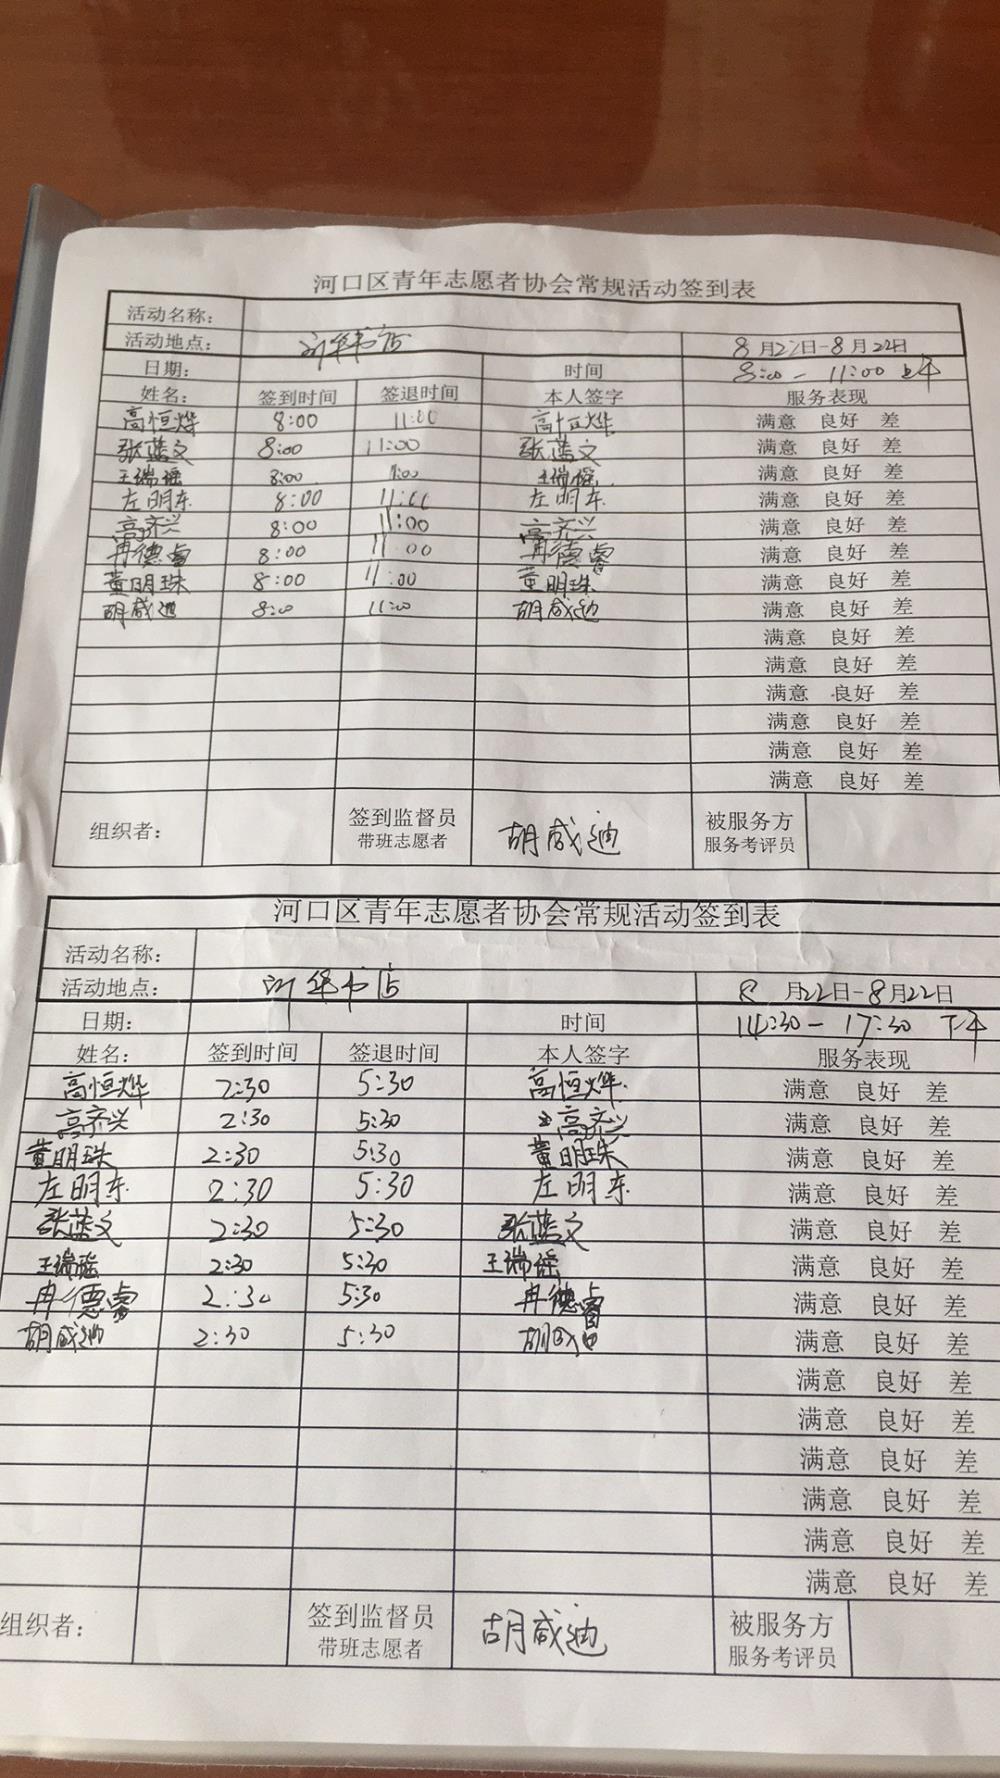 河口区青年志愿者协会常规活动签到表
活动名称：
活动地点： 新华书店 8月22日-8月22日
日期： 时间 8:00 - 11:00 上午
姓名： 签到时间 签退时间 本人签字 服务表现
高恒烨 8:00 11:00 高恒烨 满意 良好 差
张蓝文 8:00 11:00 张蓝文 满意 良好 差
王瑞瑶 8:00 11:00 王瑞瑶 满意 良好 差
左明东 8:00 11:00 左明东 满意 良好 差
高齐兴 8:00 11:00 高齐兴 满意 良好 差
冉德睿 8:00 11:00 冉德睿 满意 良好 差
董明珠 8:00 11:00 董明珠 满意 良好 差
胡咸迪 8:00 11:00 胡咸迪 满意 良好 差
满意 良好 差
满意 良好 差
满意 良好 差
满意 良好 差
满意 良好 差
满意 良好 差
组织者： 签到监督员 胡咸迪 被服务方
带班志愿者 服务考评员
河口区青年志愿者协会常规活动签到表
活动名称：
活动地点： 新华书店 8月22日-8月22日
日期： 时间 14:30 - 17:30 下午
姓名： 签到时间 签退时间 本人签字 服务表现
高恒烨 2:30 5:30 高恒烨 满意 良好 差
高齐兴 2:30 5:30 高齐兴 满意 良好 差
董明珠 2:30 5:30 董明珠 满意 良好 差
左明东 2:30 5:30 左明东 满意 良好 差
张蓝文 2:30 5:30 张蓝文 满意 良好 差
王瑞瑶 2:30 5:30 王瑞瑶 满意 良好 差
冉德睿 2:30 5:30 冉德睿 满意 良好 差
胡咸迪 2:30 5:30 满意 良好 差
满意 良好 差
满意 良好 差
满意 良好 差
满意 良好 差
满意 良好 差
满意 良好 差
组织者： 签到监督员 胡咸迪 被服务方
带班志愿者 服务考评员